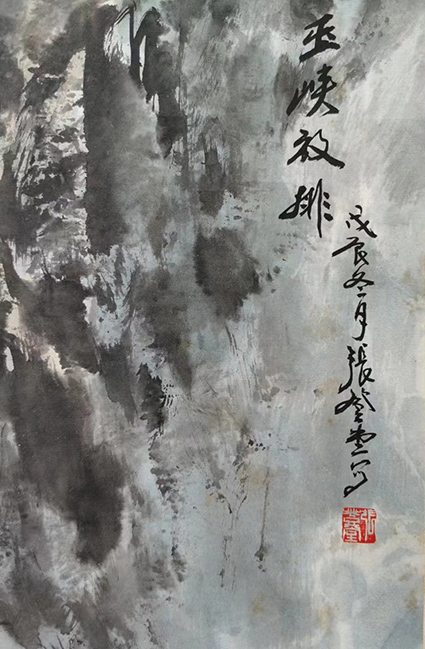 巫峡放排
戊辰冬月張登堂写
張登堂